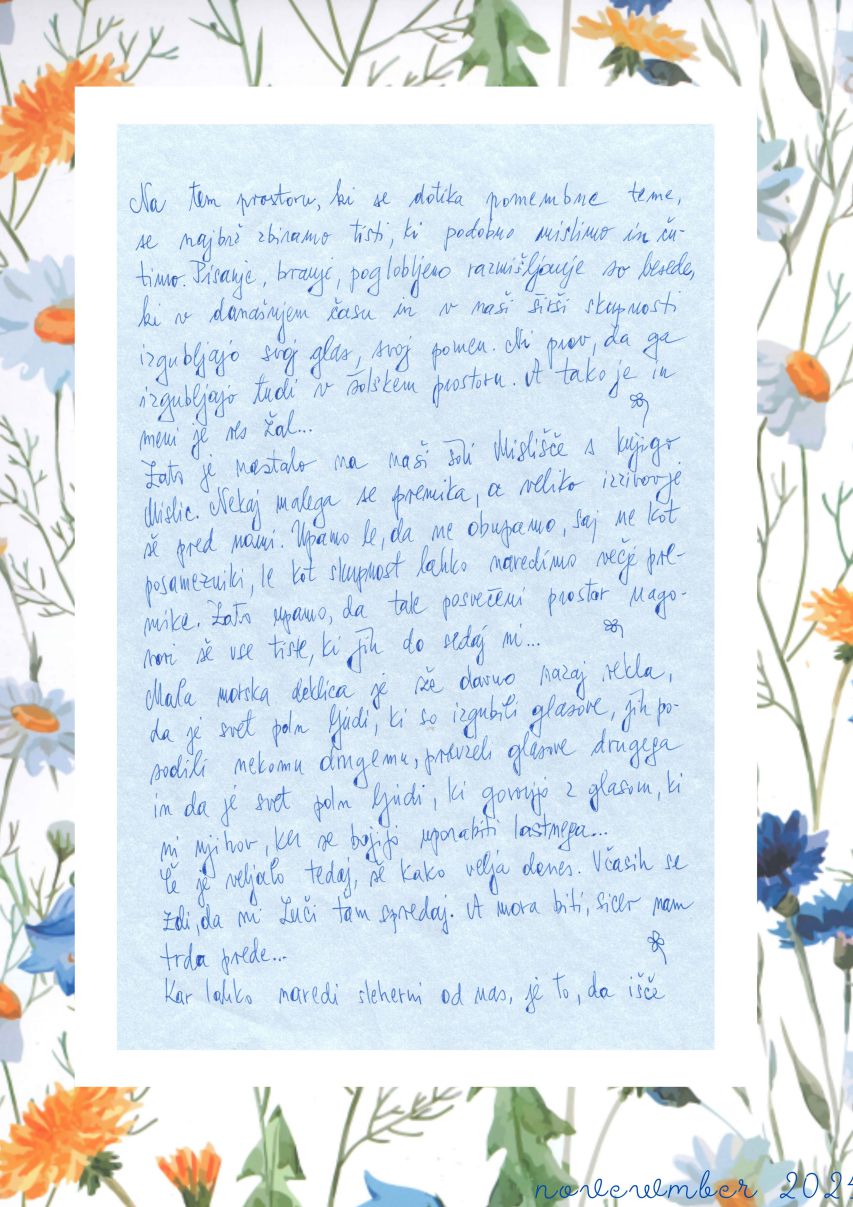 Na tem prostoru, ki se dotika pomembne teme,
se najbrž zbiramo tisti, ki podobno mislimo in ču-
timo. Pisanje, branje, poglobljeno razmišljanje so besede,
ki v današnjem času in v naši širši skupnosti
izgubljajo svoj glas, svoj pomen. Ni prav, da ga
izgubljajo tudi v šolskem prostoru. A tako je in
meni je res žal...
Zato je nastalo na naši šoli Mislišče s knjigo
Mislic. Nekaj malega se premika, a veliko izzivov je
še pred nami. Upamo le, da ne obupamo, saj ne kot
posamezniki, le kot skupnost lahko naredimo večje pre-
mike. Zato upamo, da tale posvečeni prostor nago-
vori še vse tiste, ki jih do sedaj ni...
Mala morska deklica je že davno nazaj rekla,
da je svet poln ljudi, ki so izgubili glasove, jih po-
sodili nekomu drugemu, prevzeli glasove drugega
in da je svet poln ljudi, ki govorijo z glasom, ki
ni njihov, ker se bojijo uporabiti lastnega...
Če je veljalo tedaj, še kako velja danes. Včasih se
zdi, da ni luči tam spredaj. A mora biti, sicer nam
trda prede...
Kar lahko naredi sleherni od nas, je to, da išče
november 202